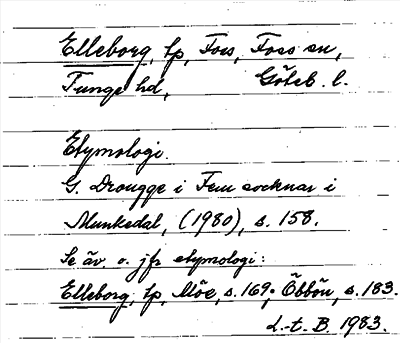 Elleborg, tp, Foss, Foss sn,
Tunge hd, Göteb. l.
Etymologi.
G. Drougge i Fem socknar i
Munkedal, (1980), s. 158.
Se äv. o. jfr etymologi:
Elleborg, tp, Möe, s. 169. Öbbön, s. 183.
L.-t. B. 1983.